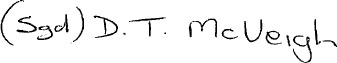 (Sgd) D.T. McVeigh